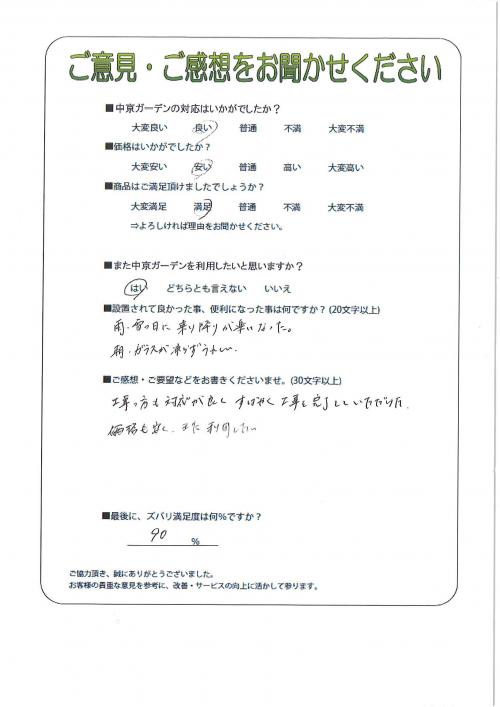 ご意見・ご感想をお聞かせください
■中京ガーデンの対応はいかがでしたか？
大変良い 良い 普通 不満 大変不満
■価格はいかがでしたか？
大変安い 安い 普通 高い 大変高い
■商品はご満足頂けましたでしょうか？
大変満足 満足 普通 不満 大変不満
⇒よろしければ理由をお聞かせください。
■また中京ガーデンを利用したいと思いますか？
はい どちらとも言えない いいえ
■設置されて良かった事、便利になった事は何ですか？(20文字以上)
雨・雪の日に乗り降りが楽になった。
朝・ガラスが凍らずうれしい。
■ご感想・ご要望などをお書きくださいませ。(30文字以上)
工事の方も対応が良く すばやく工事も完了していただけた。
価格も安く、また利用したい
■最後に、ズバリ満足度は何％ですか？
90 ％
ご協力頂き、誠にありがとうございました。
お客様の貴重な意見を参考に、改善・サービスの向上に活かして参ります。